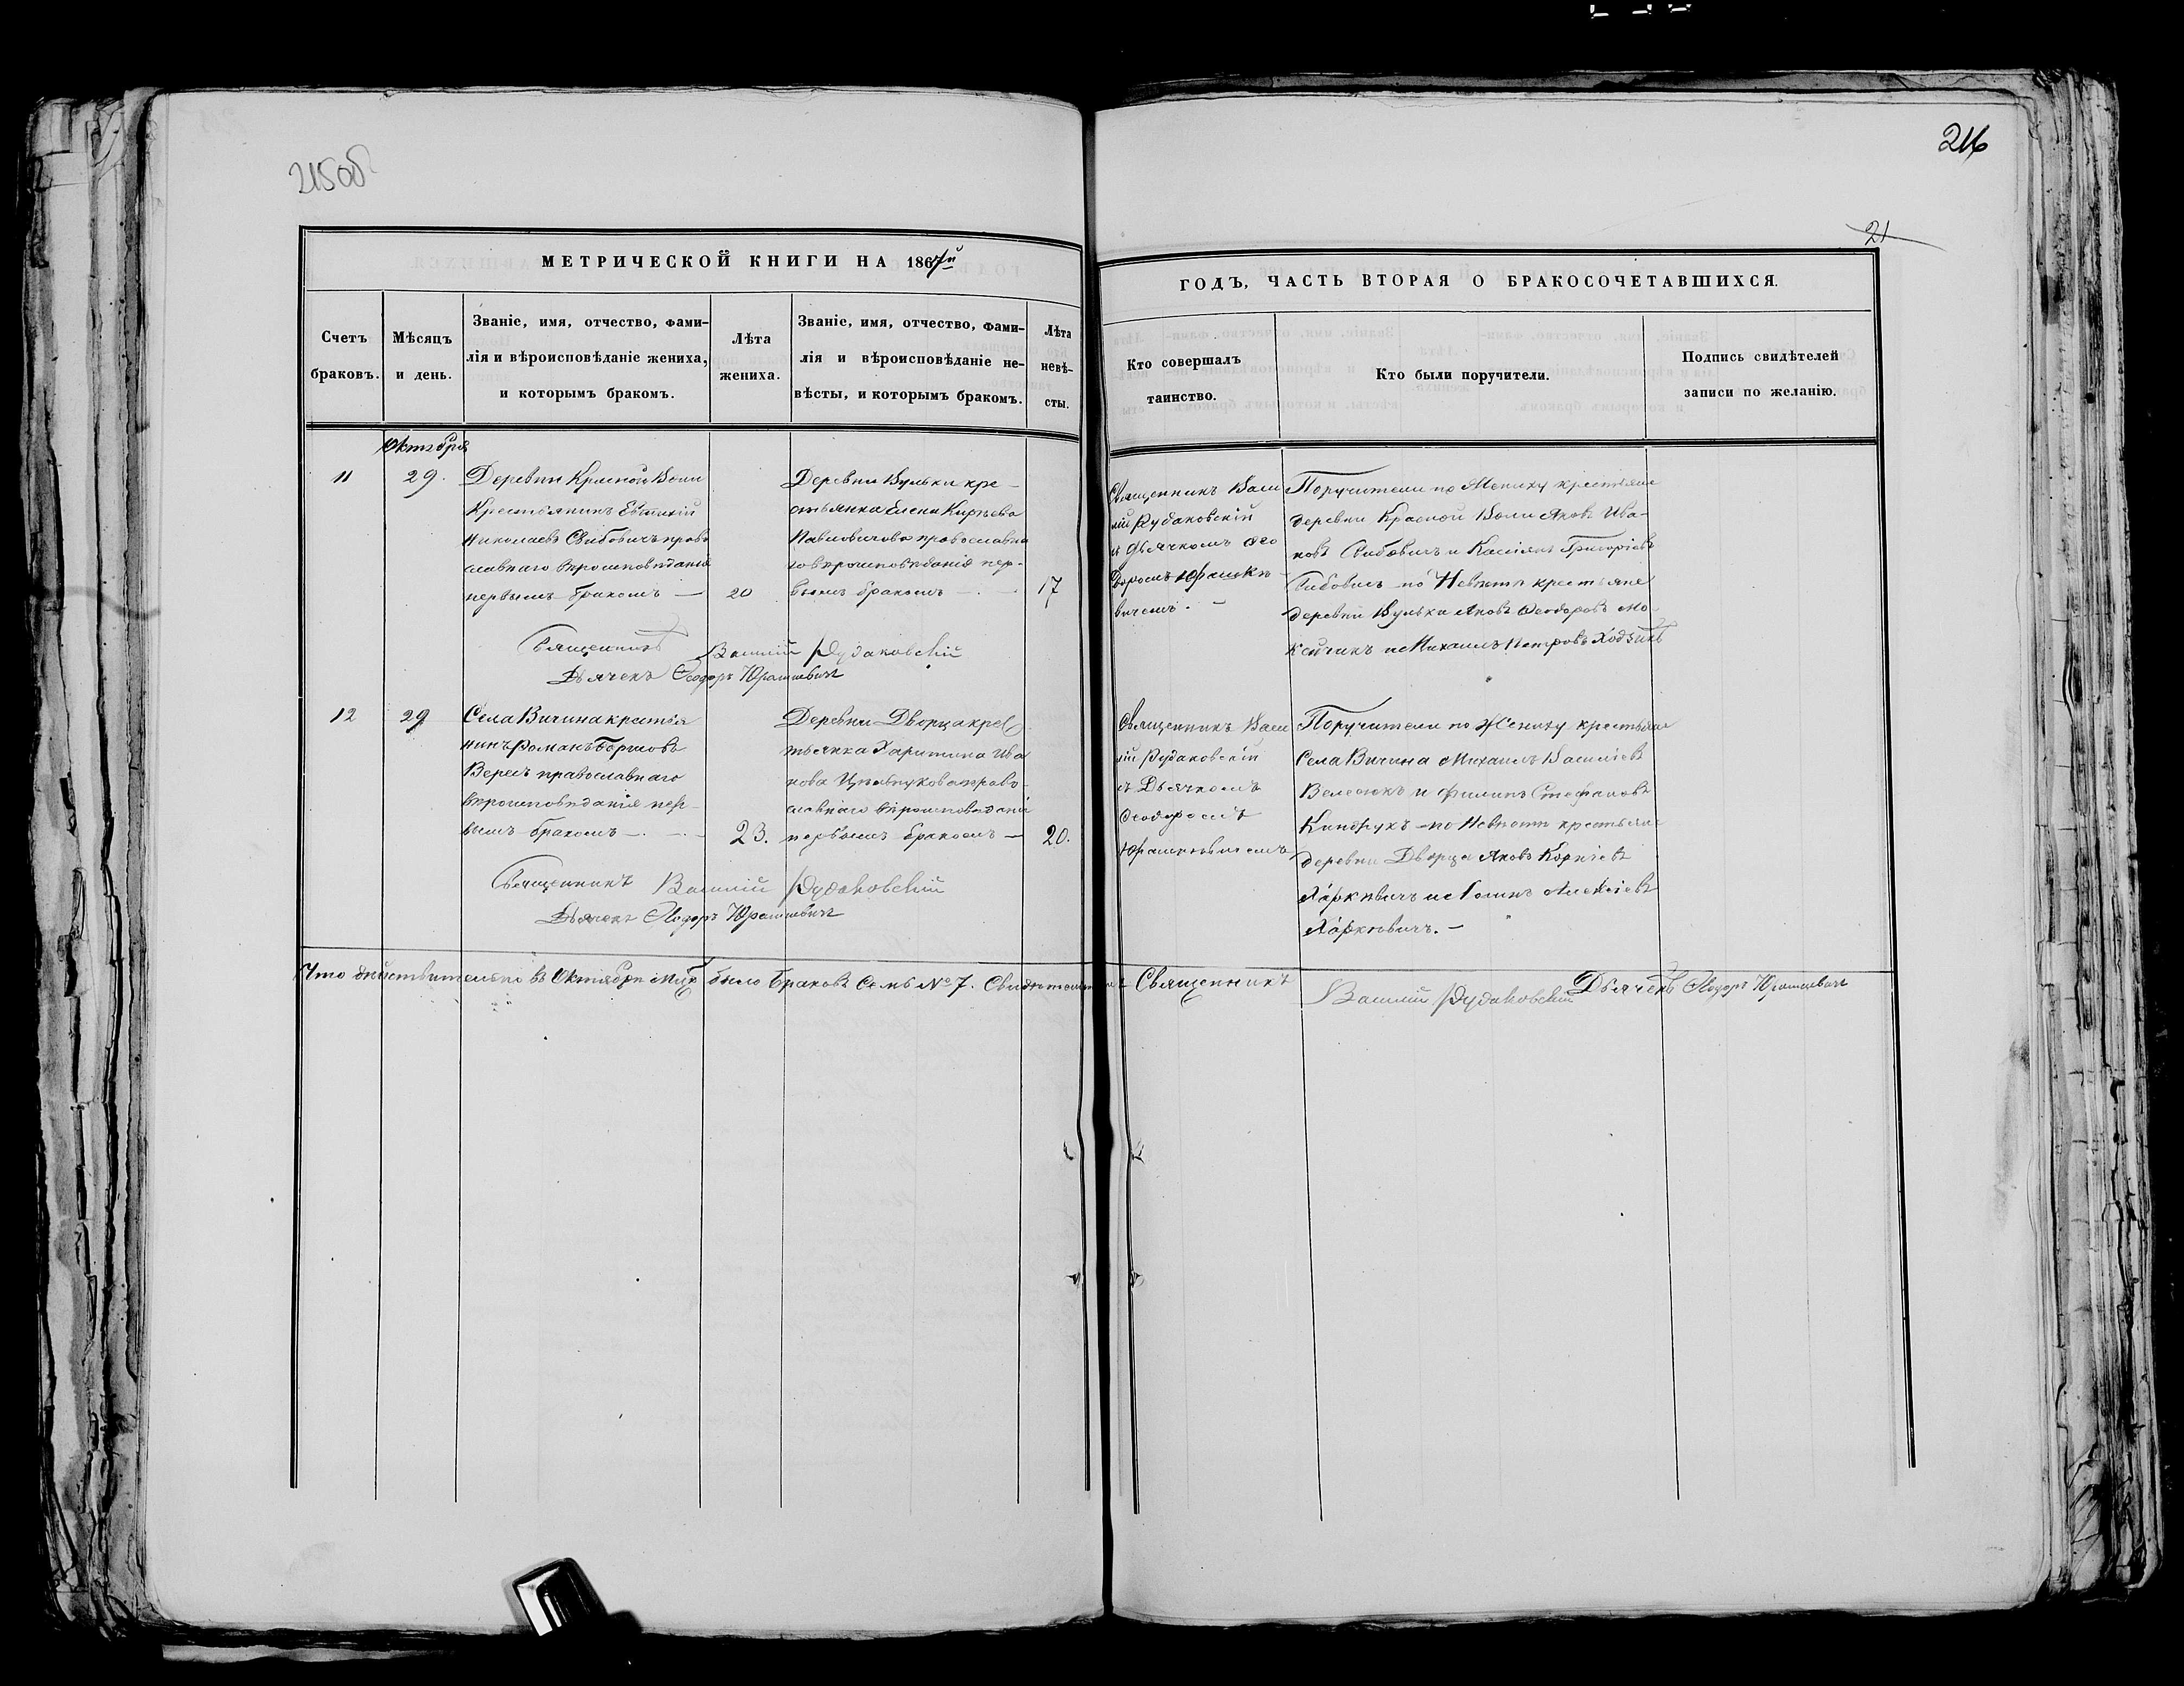 215об
216
21
МЕТРИЧЕСКОЙ КНИГИ НА 1867й
ГОДЪ, ЧАСТЬ ВТОРАЯ О БРАКОСОЧЕТАВШИХСЯ.
Счетъ
браковъ.
Мѣсяцъ
и день.
Званіе, имя, отчество, фами-
лія и вѣроисповѣданіе жениха,
и которымъ бракомъ.
Лѣта
жениха.
Званіе, имя, отчество, фами-
лія и вѣроисповѣданіе не-
вѣсты, и которымъ бракомъ.
Лѣта
невѣ-
сты.
Кто совершалъ
таинство.
Кто были поручители.
Подпись свидѣтелей
записи по желанію.
Октября
11
29.
Деревни Красной Воли
Крестьянинъ Евтихій
Николаевъ Свибовичъ право
славнаго вѣроисповѣданія
первымъ бракомъ —
20
Деревни Вульки кре-
стьянка Елена
православна
го вѣроисповѣданія пер-
вымъ бракомъ — . —
17
Священникъ Васи
лій Рудаковскій
съ Дьячкомъ Ѳео
доромъ Юрашке
вичемъ. —
Поручители по Жениху крестьяне
деревни Красной Воли Яковъ Ива-
новъ и Григоріевъ
по Невѣстѣ крестьяне
деревни Вульки Яковъ Ѳеодоровъ Мо-
и Михаилъ Петровъ
Священникъ Василій Рудаковскій
Дьячекъ Ѳеодоръ Юрашкевичъ
12
29
Села Вичина крестья
нинъ Романъ
Вересъ православнаго
вѣроисповѣданія пер-
вымъ бракомъ — . — . —
23.
Деревни Дворца крес
тьянка Харитина Ива
нова право
славнаго вѣроисповѣданія
первымъ бракомъ —
20.
Священникъ Васи
лій Рудаковскій
съ Дьячкомъ
Ѳеодоромъ
Юрашкевичемъ
Поручители по Жениху крестьяне
Села Вичина Михаилъ Василіевъ
Велесюкъ и Филипъ Стефановъ
Киндрукъ — по Невѣстѣ крестьяне
деревни Дворца Яковъ Корніевъ
Харкевичъ и Алексіевъ
Харкевичъ. —
Священникъ Василій Рудаковскій
Дьячекъ Ѳеодоръ Юрашкевичъ
Что дѣйствительно въ Октябрѣ м-цѣ было браковъ Семь № 7. Свидѣтельствуютъ Священникъ Василій Рудаковскій Дьячекъ Ѳеодоръ Юрашкевичъ